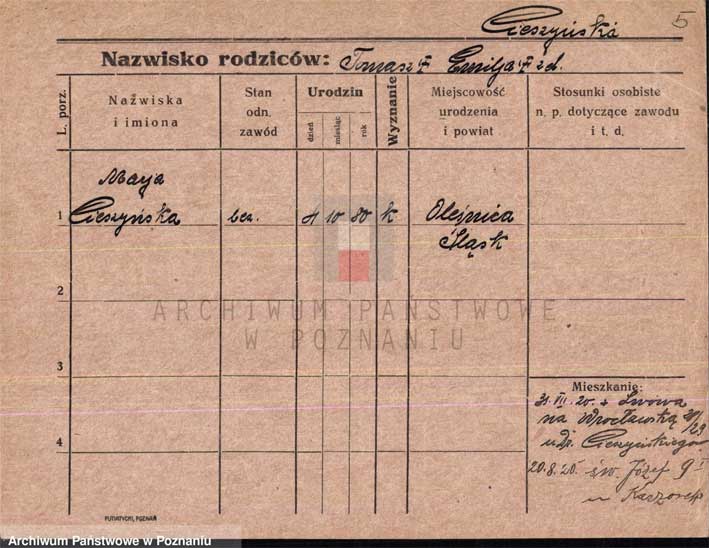 Cieszyńska
5
Nazwisko rodziców: Tomasz Emilja
L. porz.
Nazwiska
i imiona
Stan
odn.
zawód
Urodzin
dzień
miesiąc
rok
Wyznanie
Miejscowość
urodzenia
i powiat
Stosunki osobiste
n. p. dotyczące zawodu
i t. d.
Marja
1 Cieszyńska bez. 4 10 80 k Oleśnica
Śląsk
2
3
4
Mieszkanie:
31. VII. 20. Lwowa
na Wrocławską
u Dr. Cieszyńskiego
20.8.20. św. Józef 9 I
u
ARCHIWUM PAŃSTWOWE
W POZNANIU
PUTIATYCKI, POZNAŃ
Archiwum Państwowe w Poznaniu